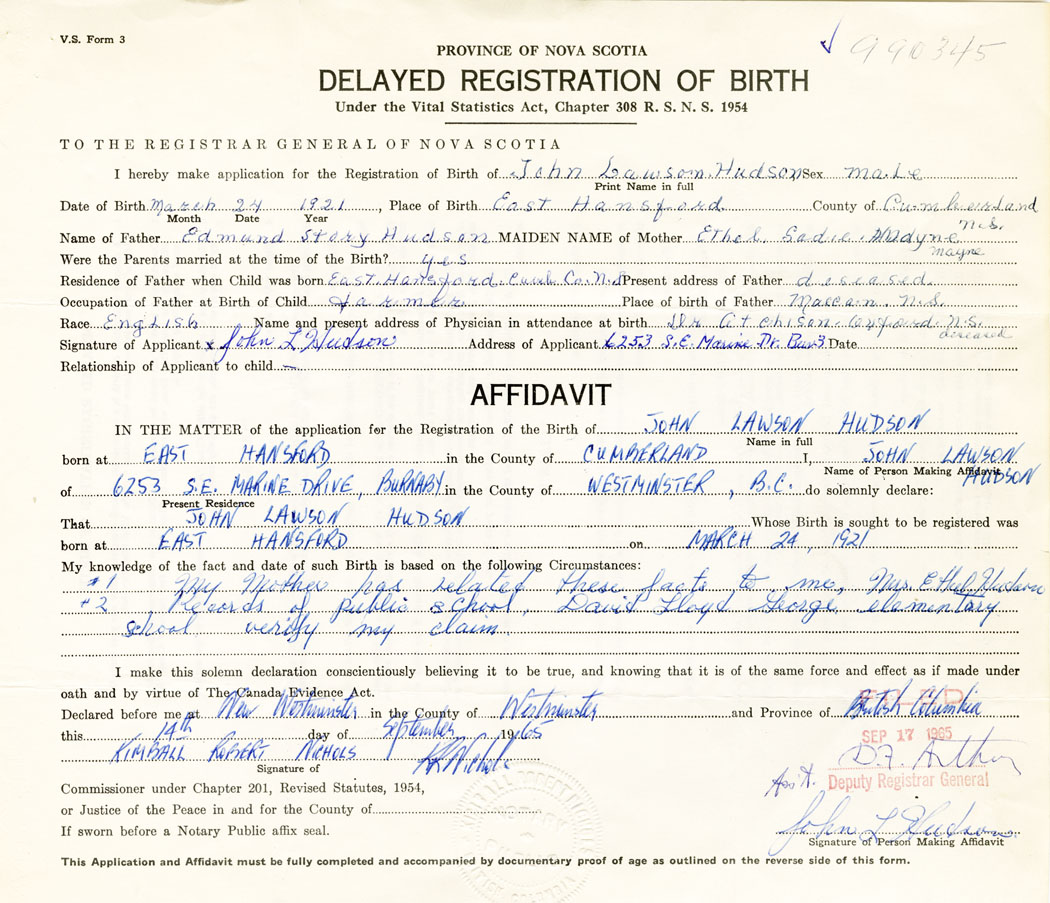 V.S. Form 3
990345
PROVINCE OF NOVA SCOTIA
DELAYED REGISTRATION OF BIRTH
Under the Vital Statistics Act, Chapter 308 R. S. N. S. 1954
TO THE REGISTRAR GENERAL OF NOVA SCOTIA
I hereby make application for the Registration of Birth of John Lawson Hudson Sex male
Print Name in full
Date of Birth March 24 1921, Place of Birth East Hansford County of Cumberland
Month Date Year N.S.
Name of Father Edmund Story Hudson MAIDEN NAME of Mother Ethel Sadie
Mayne
Were the Parents married at the time of the Birth? yes
Residence of Father when Child was born East Hansford Cumb Co. N.S Present address of Father deseased
Occupation of Father at Birth of Child Farmer Place of birth of Father Maccan N.S.
Race English Name and present address of Physician in attendance at birth Dr Atchison Oxford N.S.
deseased
Signature of Applicant x John L Hudson Address of Applicant 6253 S.E. Marine Dr. Bur 3 Date
Relationship of Applicant to child
AFFIDAVIT
IN THE MATTER of the application for the Registration of the Birth of JOHN LAWSON HUDSON
Name in full
born at EAST HANSFORD in the County of CUMBERLAND I, JOHN LAWSON HUDSON
Name of Person Making Affidavit
of 6253 S.E. MARINE DRIVE, BURNABY in the County of WESTMINSTER, B.C. do solemnly declare:
Present Residence
That JOHN LAWSON HUDSON Whose Birth is sought to be registered was
born at EAST HANSFORD on MARCH 24, 1921
My knowledge of the fact and date of such Birth is based on the following Circumstances:
#1 My Mother has related these facts to me, Mrs. Ethel Hudson
#2 Records of public school, David Lloyd George, elementary
school verify my claim.
I make this solemn declaration conscientiously believing it to be true, and knowing that it is of the same force and effect as if made under
oath and by virtue of The Canada Evidence Act.
Declared before me at New Westminster in the County of Westminster and Province of British Columbia
this 14th day of September 1965
SEP 17 1965
KIMBALL ROBERT NICHOLS KR Nichols
D.F. Arthur
Signature of
Ass't. Deputy Registrar General
Commissioner under Chapter 201, Revised Statutes, 1954,
or Justice of the Peace in and for the County of
If sworn before a Notary Public affix seal.
John L Hudson
Signature of Person Making Affidavit
This Application and Affidavit must be fully completed and accompanied by documentary proof of age as outlined on the reverse side of this form.